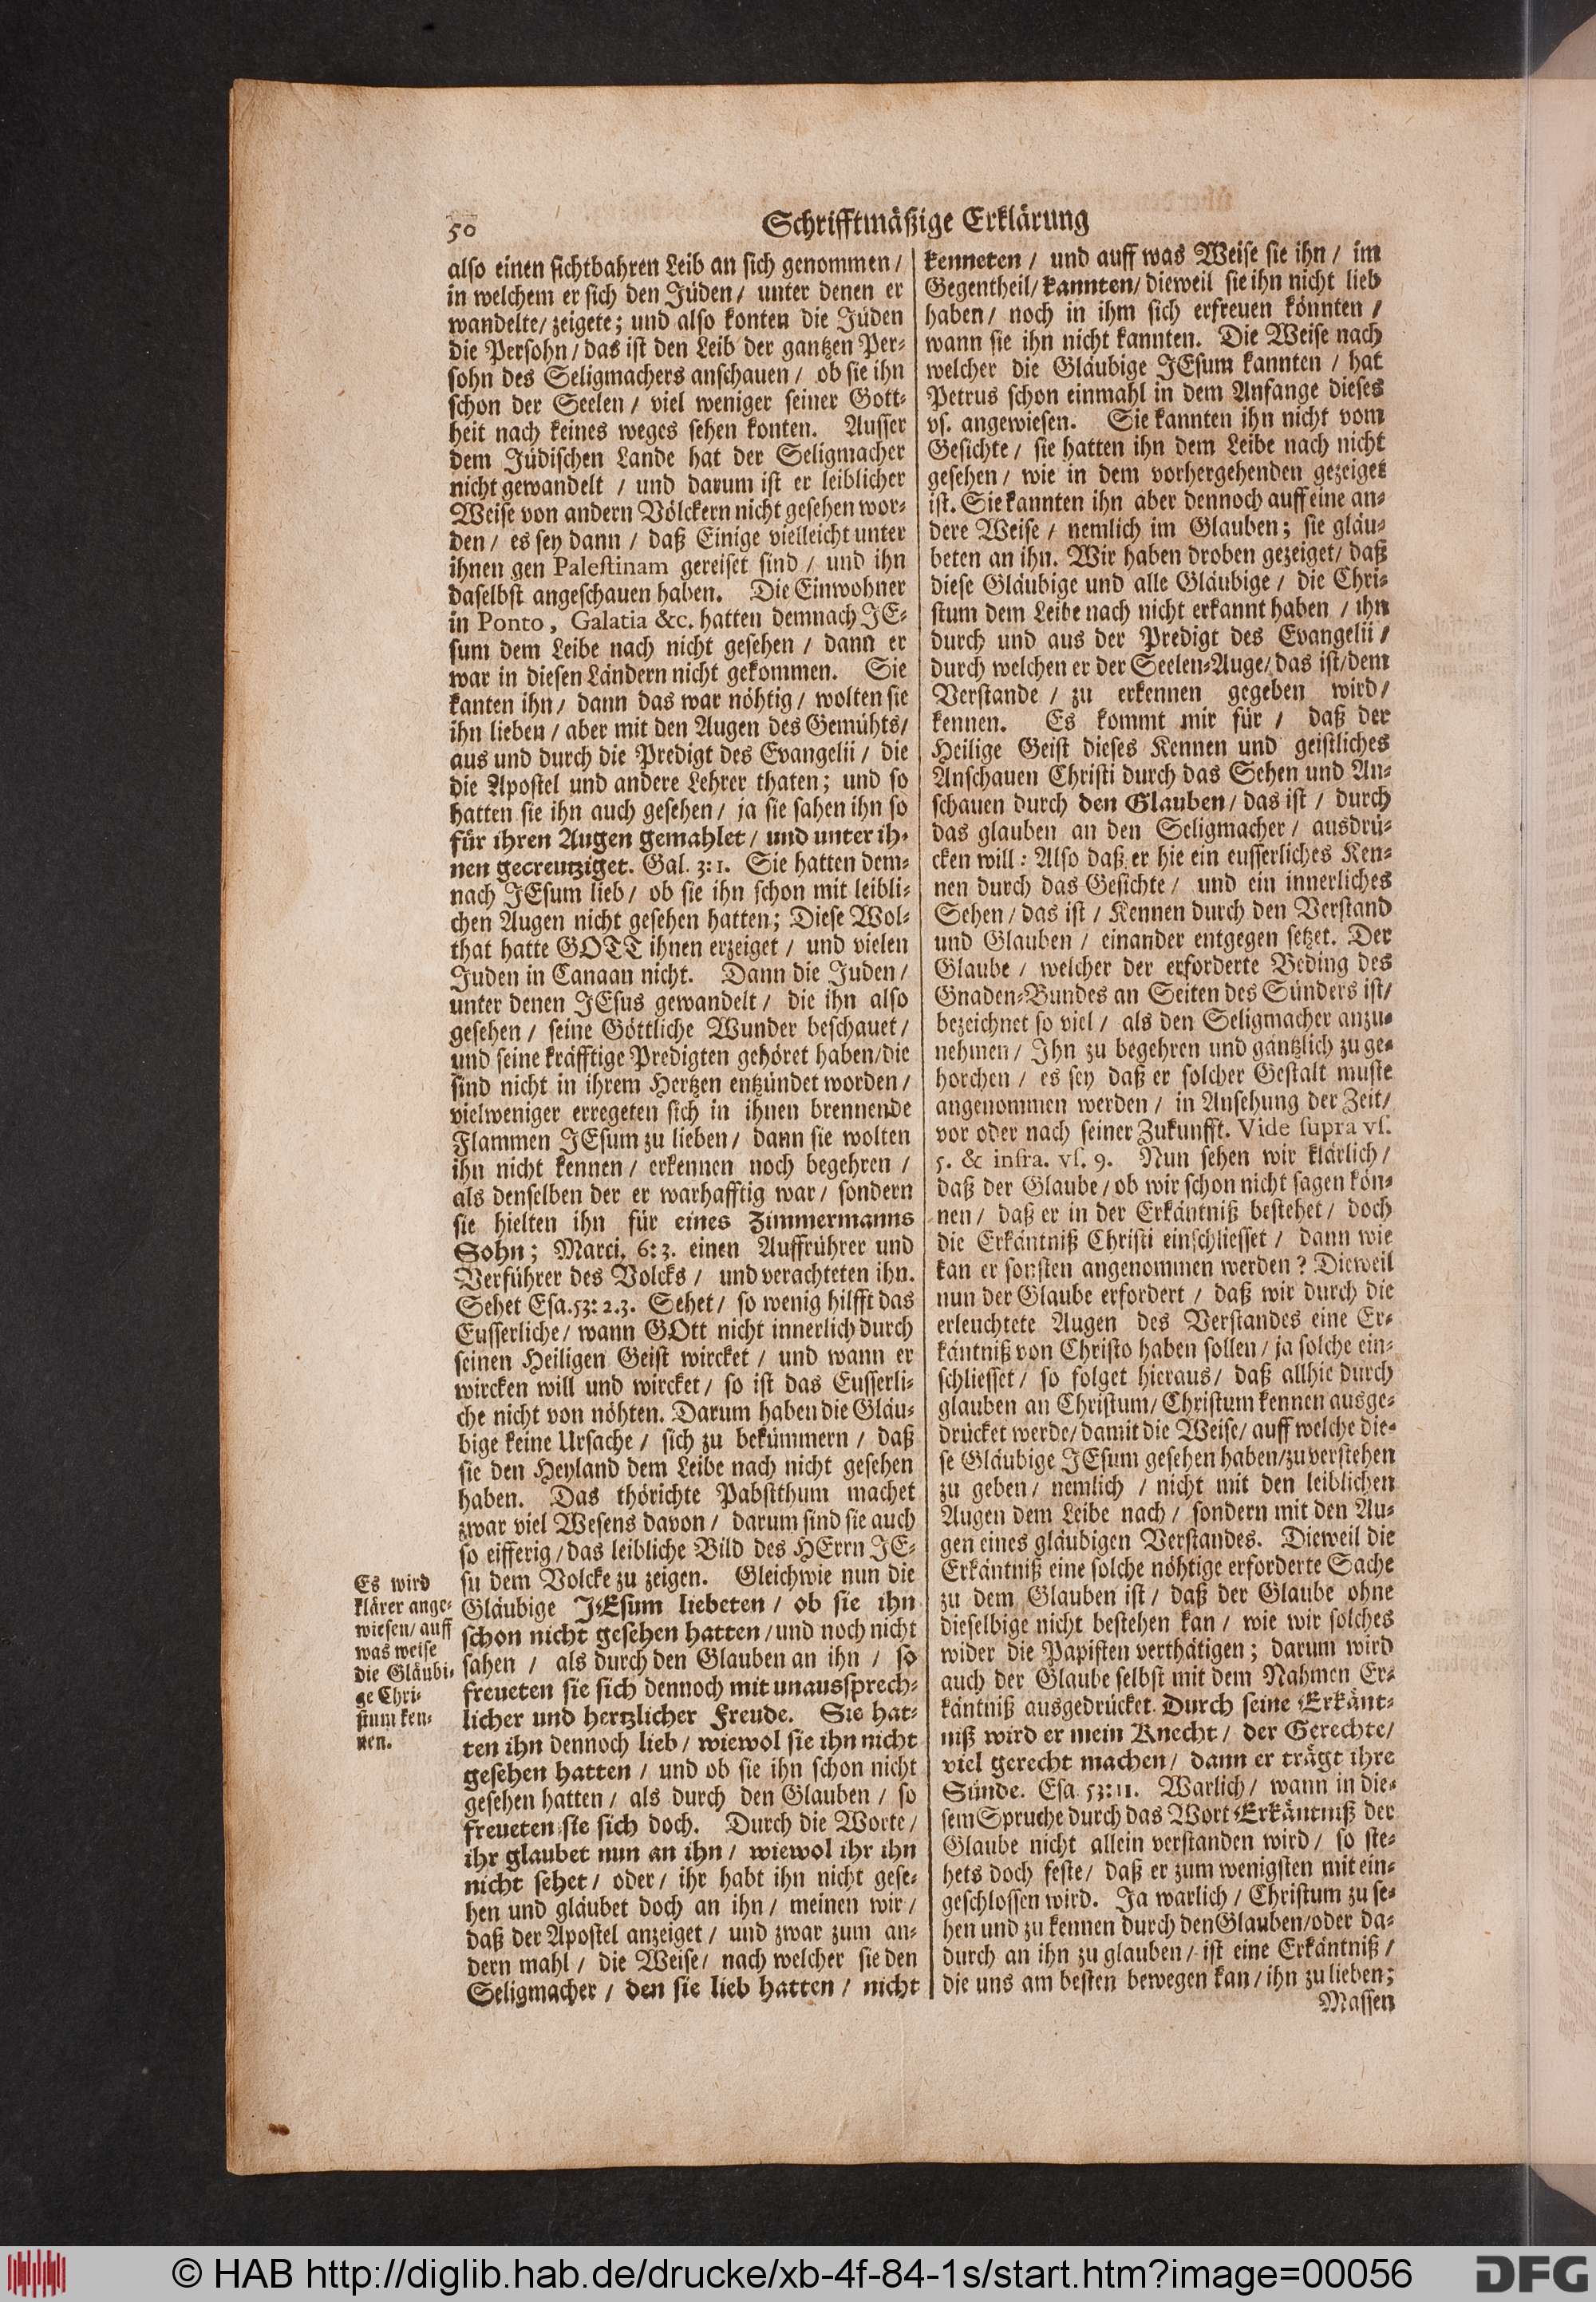 50
Schrifftmäßige Erklärung
also einen sichtbahren Leib an sich genommen /
in welchem er sich den Jüden / unter denen er
wandelte / zeigete; und also konten die Jüden
die Persohn / das ist den Leib der gantzen Per-
sohn des Seligmachers anschauen / ob sie ihn
schon der Seelen / viel weniger seiner Gott-
heit nach keines weges sehen konten. Ausser
dem Jüdischen Lande hat der Seligmacher
nicht gewandelt / und darum ist er leiblicher
Weise von andern Völckern nicht gesehen wor-
den / es sey dann / daß Einige vielleicht unter
ihnen gen Palestinam gereiset sind / und ihn
daselbst angeschauen haben. Die Einwohner
in Ponto, Galatia &c. hatten demnach JE-
sum dem Leibe nach nicht gesehen / dann er
war in diesen Ländern nicht gekommen. Sie
kanten ihn / dann das war nöhtig / wolten sie
ihn lieben / aber mit den Augen des Gemühts /
aus und durch die Predigt des Evangelii / die
die Apostel und andere Lehrer thaten; und so
hatten sie ihn auch gesehen / ja sie sahen ihn so
für ihren Augen gemahlet / und unter ih-
nen gecreutziget. Gal. 3:1. Sie hatten dem-
nach JEsum lieb / ob sie ihn schon mit leibli-
chen Augen nicht gesehen hatten; Diese Wol-
that hatte GOTT ihnen erzeiget / und vielen
Juden in Canaan nicht. Dann die Juden /
unter denen JEsus gewandelt / die ihn also
gesehen / seine Göttliche Wunder beschauet /
und seine kräfftige Predigten gehöret haben / die
sind nicht in ihrem Hertzen entzündet worden /
vielweniger erregeten sich in ihnen brennende
Flammen JEsum zu lieben / dann sie wolten
ihn nicht kennen / erkennen noch begehren /
als denselben der er warhafftig war / sondern
sie hielten ihn für eines Zimmermanns
Sohn; Marci. 6:3. einen Auffrührer und
Verführer des Volcks / und verachteten ihn.
Sehet Esa. 53:2.3. Sehet / so wenig hilfft das
Eusserliche / wann GOtt nicht innerlich durch
seinen Heiligen Geist wircket / und wann er
wircken will und wircket / so ist das Eusserli-
che nicht von nöhten. Darum haben die Gläu-
bige keine Ursache / sich zu bekümmern / daß
sie den Heyland dem Leibe nach nicht gesehen
haben. Das thörichte Pabstthum machet
zwar viel Wesens davon / darum sind sie auch
so eifferig / das leibliche Bild des HErrn JE-
su dem Volcke zu zeigen. Gleichwie nun die
Gläubige JEsum liebeten / ob sie ihn
schon nicht gesehen hatten / und noch nicht
sahen / als durch den Glauben an ihn / so
freueten sie sich dennoch mit unaussprech-
licher und hertzlicher Freude. Sie hat-
ten ihn dennoch lieb / wiewol sie ihn nicht
gesehen hatten / und ob sie ihn schon nicht
gesehen hatten / als durch den Glauben / so
freueten sie sich doch. Durch die Worte /
ihr glaubet nun an ihn / wiewol ihr ihn
nicht sehet / oder / ihr habt ihn nicht gese-
hen und gläubet doch an ihn / meinen wir /
daß der Apostel anzeiget / und zwar zum an-
dern mahl / die Weise / nach welcher sie den
Seligmacher / den sie lieb hatten / nicht
Es wird
klärer ange-
wiesen / auff
was weise
die Gläubi-
ge Chri-
stum ken-
nen.
kenneten / und auff was Weise sie ihn / im
Gegentheil / kannten / dieweil sie ihn nicht lieb
haben / noch in ihm sich erfreuen könnten /
wann sie ihn nicht kannten. Die Weise nach
welcher die Gläubige JEsum kannten / hat
Petrus schon einmahl in dem Anfange dieses
vs. angewiesen. Sie kannten ihn nicht vom
Gesichte / sie hatten ihn dem Leibe nach nicht
gesehen / wie in dem vorhergehenden gezeiget
ist. Sie kannten ihn aber dennoch auff eine an-
dere Weise / nemlich im Glauben; sie gläu-
beten an ihn. Wir haben droben gezeiget / daß
diese Gläubige und alle Gläubige / die Chri-
stum dem Leibe nach nicht erkannt haben / ihn
durch und aus der Predigt des Evangelii /
durch welchen er der Seelen-Auge / das ist / dem
Verstande / zu erkennen gegeben wird /
kennen. Es kommt mir für / daß der
Heilige Geist dieses Kennen und geistliches
Anschauen Christi durch das Sehen und An-
schauen durch den Glauben / das ist / durch
das glauben an den Seligmacher / ausdrü-
cken will: Also daß er hie ein eusserliches Ken-
nen durch das Gesichte / und ein innerliches
Sehen / das ist / Kennen durch den Verstand
und Glauben / einander entgegen setzet. Der
Glaube / welcher der erforderte Beding des
Gnaden-Bundes an Seiten des Sünders ist /
bezeichnet so viel / als den Seligmacher anzu-
nehmen / Ihn zu begehren und gäntzlich zu ge-
horchen / es sey daß er solcher Gestalt muste
angenommen werden / in Ansehung der Zeit /
vor oder nach seiner Zukunfft. Vide supra vs.
5. & infra. vs. 9. Nun sehen wir klärlich /
daß der Glaube / ob wir schon nicht sagen kön-
nen / daß er in der Erkäntniß bestehet / doch
die Erkäntniß Christi einschliesset / dann wie
kan er sonsten angenommen werden? Dieweil
nun der Glaube erfordert / daß wir durch die
erleuchtete Augen des Verstandes eine Er-
käntniß von Christo haben sollen / ja solche ein-
schliesset / so folget hieraus / daß allhie durch
glauben an Christum / Christum kennen ausge-
drücket werde / damit die Weise / auff welche die-
se Gläubige JEsum gesehen haben / zu verstehen
zu geben / nemlich / nicht mit den leiblichen
Augen dem Leibe nach / sondern mit den Au-
gen eines gläubigen Verstandes. Dieweil die
Erkäntniß eine solche nöhtige erforderte Sache
zu dem Glauben ist / daß der Glaube ohne
dieselbige nicht bestehen kan / wie wir solches
wider die Papisten verthätigen; darum wird
auch der Glaube selbst mit dem Nahmen Er-
käntniß ausgedrücket. Durch seine Erkänt-
niß wird er mein Knecht / der Gerechte /
viel gerecht machen / dann er trägt ihre
Sünde. Esa. 53:11. Warlich / wann in die-
sem Spruche durch das Wort Erkäntniß der
Glaube nicht allein verstanden wird / so ste-
hets doch feste / daß er zum wenigsten mit ein-
geschlossen wird. Ja warlich / Christum zu se-
hen und zu kennen durch den Glauben / oder da-
durch an ihn zu glauben / ist eine Erkäntniß /
die uns am besten bewegen kan / ihn zu lieben;
Massen
© HAB http://diglib.hab.de/drucke/xb-4f-84-1s/start.htm?image=00056
DFG